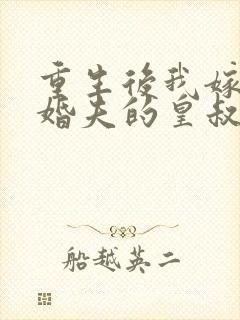 重生後我嫁
婚夫的皇叔
船越英二